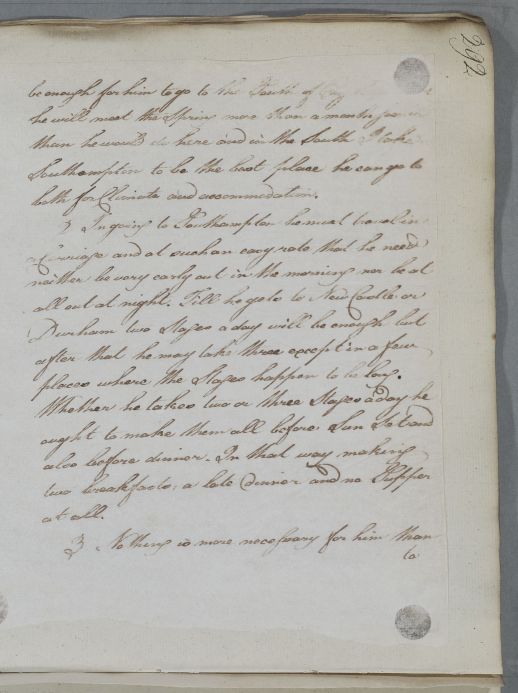 292
be enough for him to go to the South of
he will meet the Spring more than a month
than he would do here and in the South I take
Southampton to be the best place he can go to
both for Climate and accommodation.
In going to Southampton he must travel in
a Carriage and at such an easy rate that he need
neither be very early out in the morning nor be at
all out at night. Till he gets to New Castle or
Durham two Stages a day will be enough but
after that he may take three except in a few
places where the Stages happen to be long.
Whether he takes two or three Stages a day he
ought to make them all before Sun Set and
also before dinner. In that way making
two breakfasts: a late dinner and no Supper
at all.
3 Nothing is more necessary for him than
to